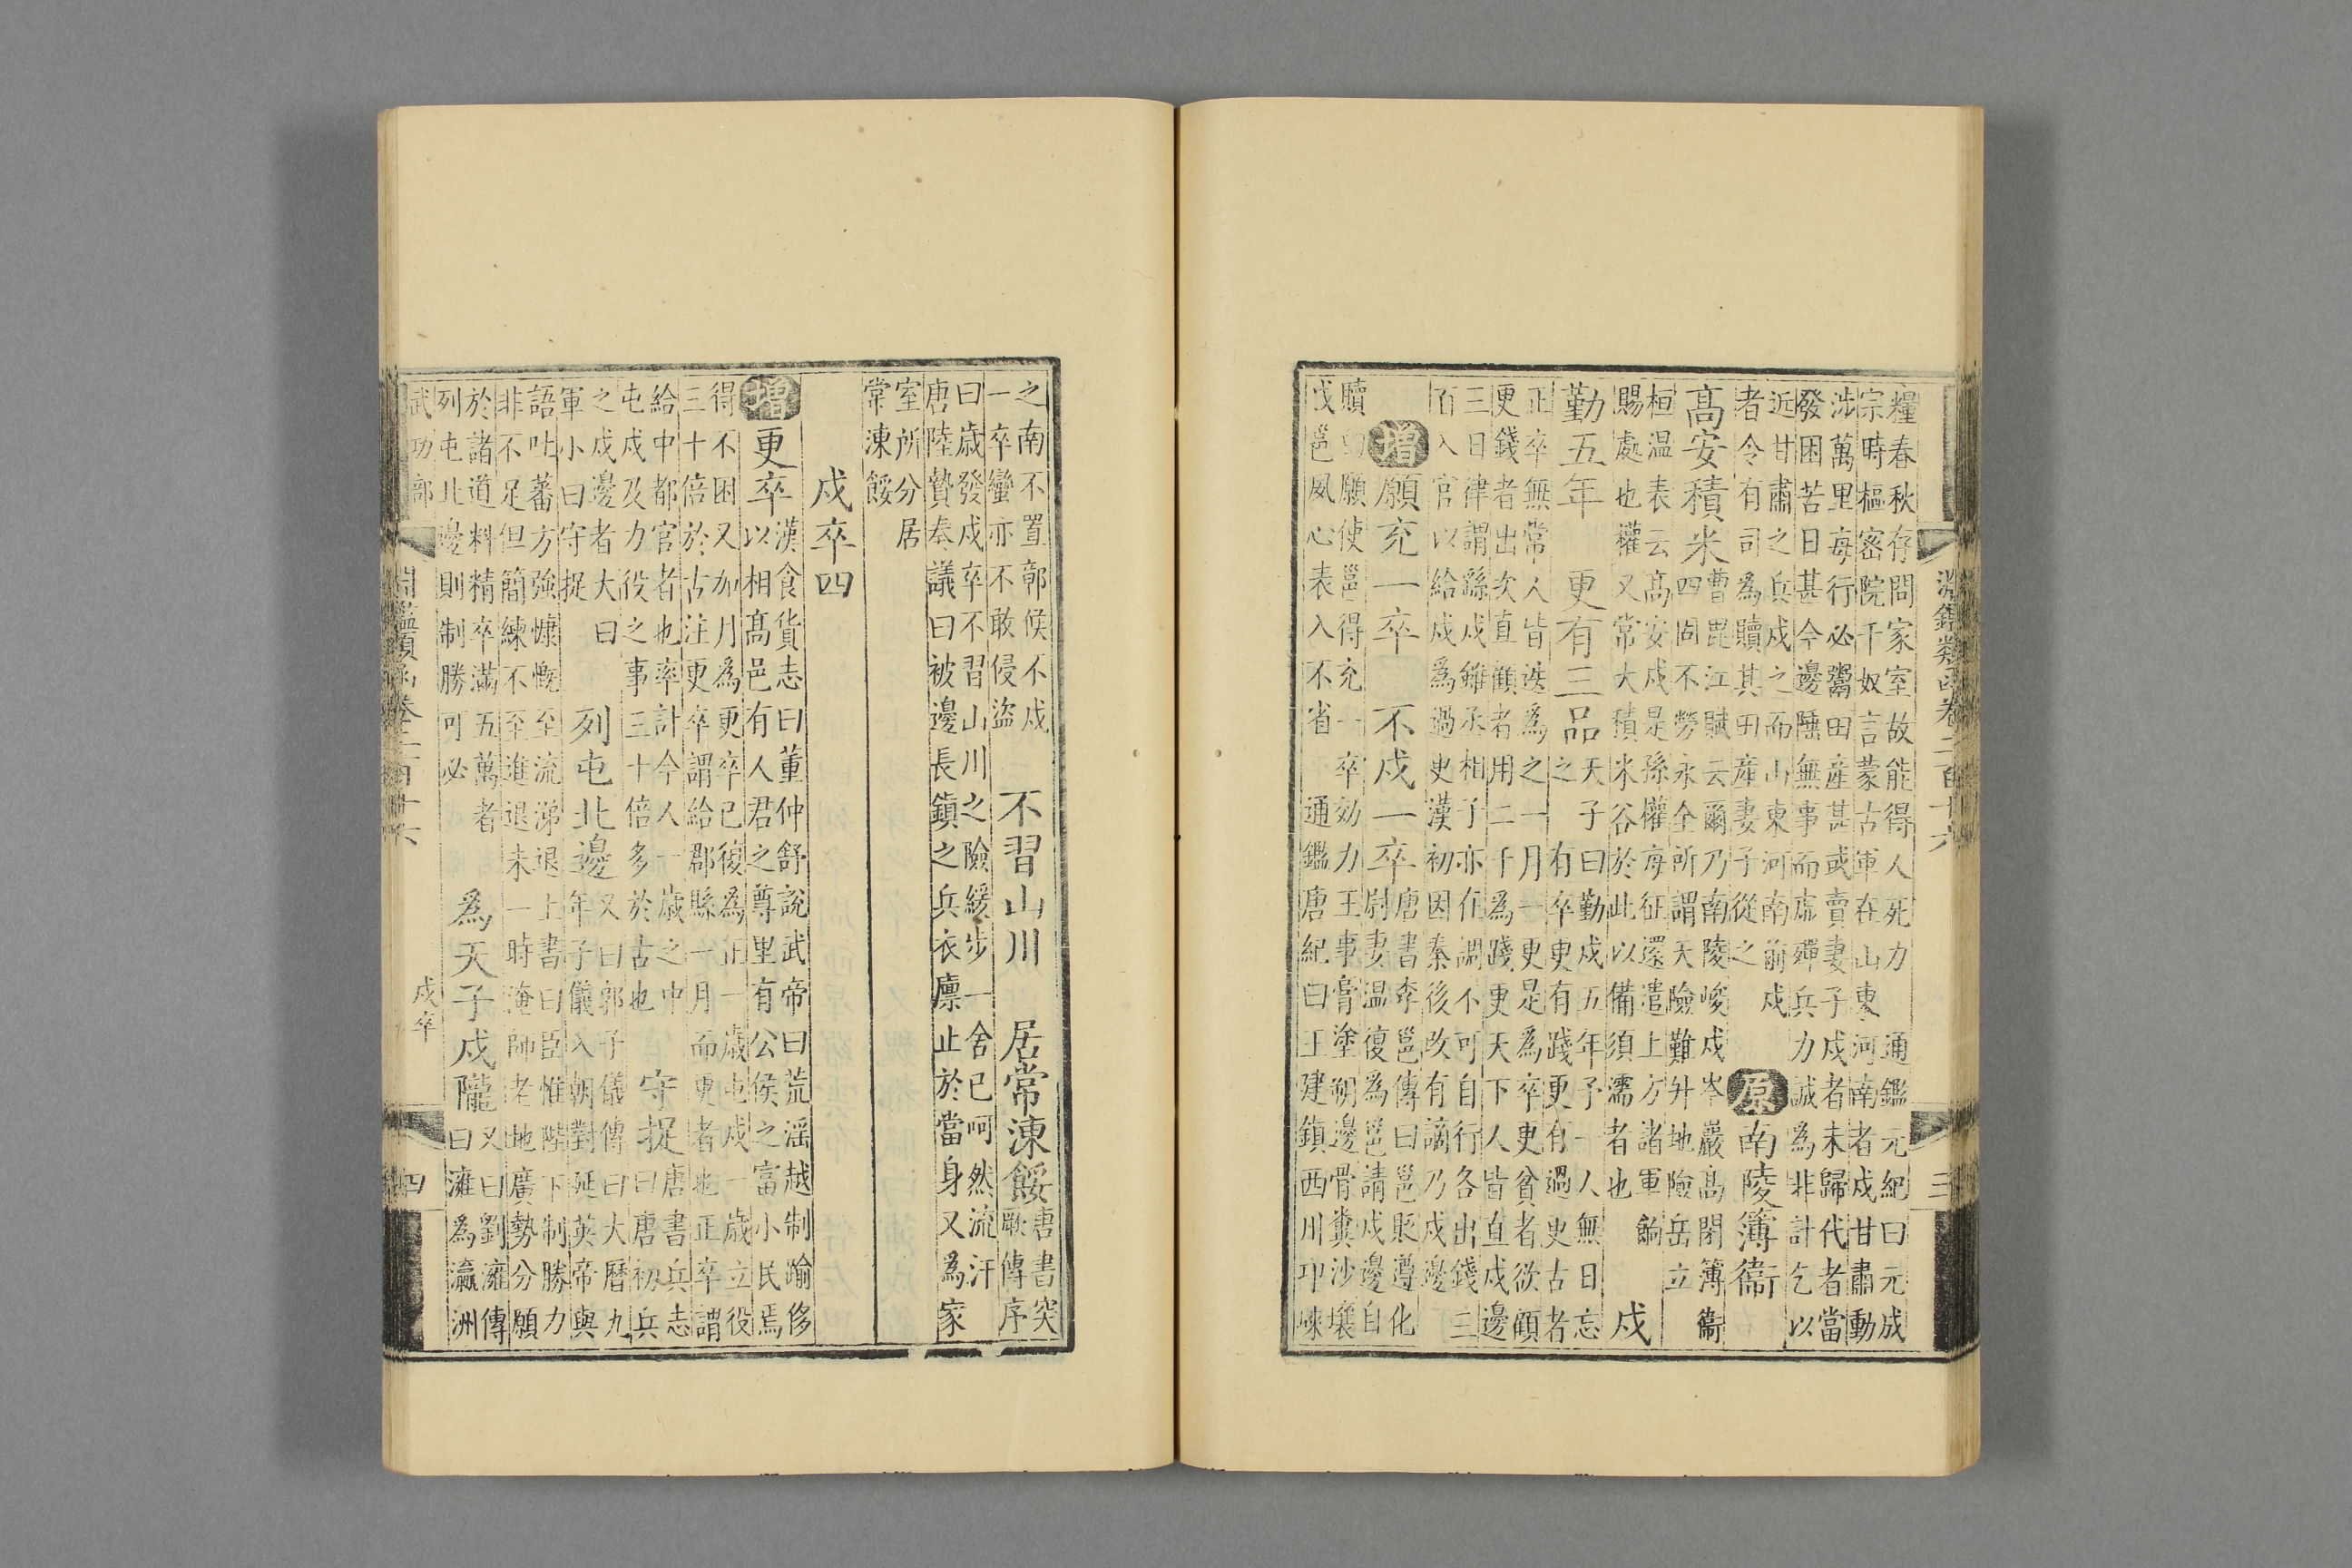 淵鑑類函卷二百十六
三
糧春秋存問家室故能得人死力 通鑑元紀曰元成
宗時樞密院千奴言蒙古軍在山東河南者戍甘肅動
涉萬里每行必鬻田產甚或賣妻子戍者未歸代者當
發困苦日甚今邊陲無事而虛殫兵力誠為非計乞以
近甘肅之兵戍之而山東河南前戍
者令有司為贖其田產妻子從之
原 南陵簿衞
高安積米
曹毘江賦云爾乃南陵峻戍岑巖高閉簿衞
四固不勞永全所謂天險難升地險岳立
桓温表云高安戍是孫權每征還遣上方諸軍餉
賜處也權又常大積米谷於此以備須濡者也
戍
勤五年 更有三品
天子曰勤戍五年予一人無日忘
之 有卒更有踐更有過更古者
正卒無常人皆迭為之一月一更是為卒更貧者欲顧
更錢者出次直顧者用二千為踐更天下人皆直戍邊
三日律謂繇戍雖丞相子亦在調不可自行各出錢三
百入官以給戍為過更漢初因秦後改有謫乃戍邊
增 願充一卒 不戍一卒
唐書李邕傳曰邕貶遵化
尉妻温復為邕請戍邊自
贖曰願使邕得充一卒効力王事膏塗朔邊骨糞沙壤
成邕夙心表入不省 通鑑唐紀曰王建鎮西川卭崍
之南不置鄣候不戍
一卒蠻亦不敢侵盜
不習山川 居常凍餒
唐書突
厥傳序
曰歲發戍卒不習山川之險緩步一舍已呵然流汗
唐陸贄奏議曰被邊長鎮之兵衣廩止於當身又為家
室所分居
常凍餒
戍卒四
增 更卒
漢食貨志曰董仲舒說武帝曰荒淫越制踰侈
以相高邑有人君之尊里有公侯之富小民焉
得不困又加月為更卒已復為正一歲屯戍一歲立役
三十倍於古注更卒謂給郡縣一月而更者也正卒謂
給中都官者也率計今人一歲之中
屯戍及力役之事三十倍多於古也
守捉
唐書兵志
曰唐初兵
之戍邊者大曰
軍小曰守捉
列屯北邊
又曰郭子儀傳曰大曆九
年子儀入朝對延英帝與
語吐蕃方強慷慨至流涕退上書曰臣惟陛下制勝力
非不足但簡練不至進退未一時淹師老地廣勢分願
於諸道料精卒滿五萬者
列屯北邊則制勝可必
為天子戍隴
又曰劉澭傳
曰澭為瀛洲
武功部
淵鑑類函卷二百十六
戍卒
四